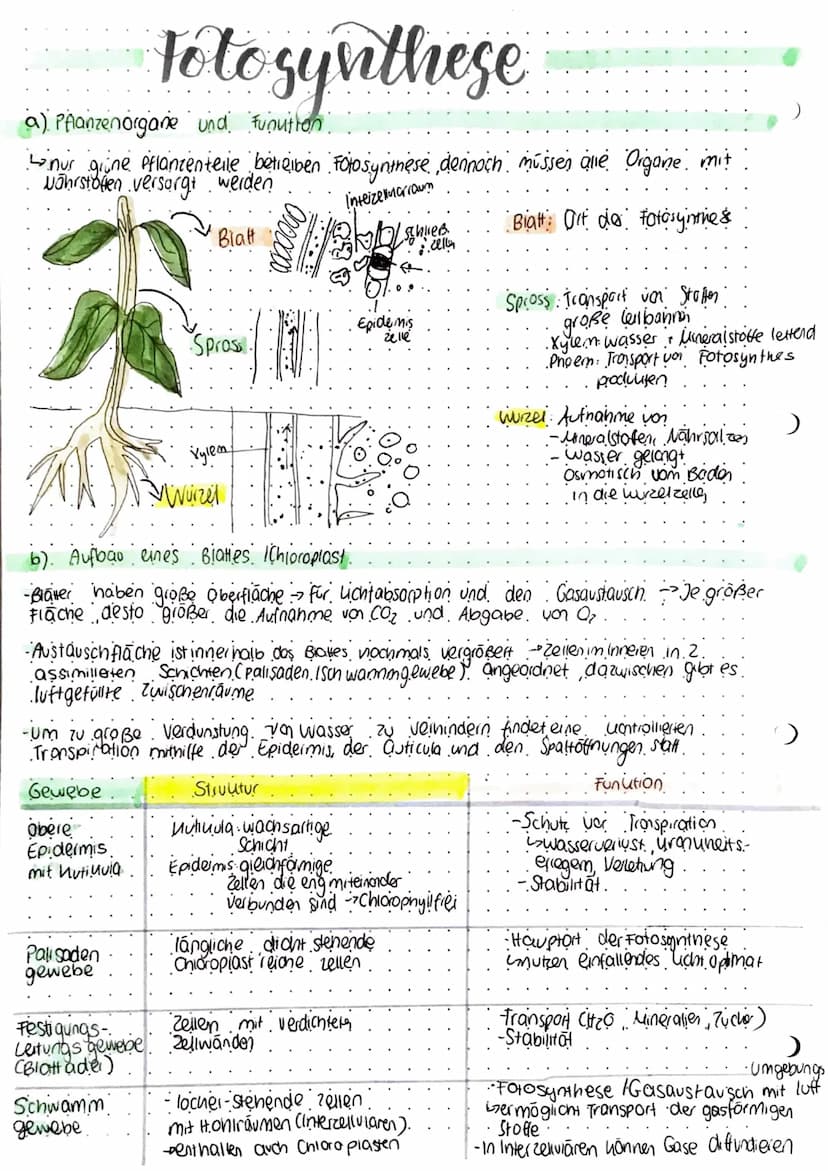 Fotosynthese
a) Pflanzenorgane und Funktion
↳ nur grüne Pflanzenteile betreiben Fotosynthese, dennoch müssen alle Organe mit
Nährstoffen versorgt werden
Interzellularraum
Blatt
Schließ
zellen
Epidermis
zelle
Spross
Xylem
Wurzel
Blatt: Ort der Fotosynthese
Spross: Transport von Stoffen
große Leitbahnen
Xylem: Wasser + Mineralstoffe leitend
Phloem: Transport von Fotosynthes
produkten
Wurzel: Aufnahme von
- Mineralstoffen, Nährsalzen
- Wasser gelangt
osmotisch vom Boden
in die Wurzelzellen
b) Aufbau eines Blattes /Chloroplast
- Blätter haben große Oberfläche → für Lichtabsorption und den Gasaustausch → Je größer
Fläche, desto größer die Aufnahme von CO2 und Abgabe von O2
- Austauschfläche ist innerhalb des Blattes nochmals vergrößert → Zellen im Inneren in 2
assimilierten Schichten (Palisaden /Schwammgewebe) angeordnet, dazwischen gibt es
luftgefüllte Zwischenräume
- Um zu große Verdunstung von Wasser zu verhindern findet eine kontrollierten
Transpiration mithilfe der Epidermis, der Cuticula und den Spaltöffnungen statt
Gewebe Struktur Funktion
obere
Epidermis
mit Kutikula
Kutikula: wachsartige
Schicht
Epidermis: gleichförmige
Zellen die eng miteinander
verbunden sind → Chlorophyllfrei
- Schutz vor Transpiration
↳ Wasserverlust, Krankheits-
erregern, Verletzung
- Stabilität
Palisaden
gewebe
längliche, dicht stehende
Chloroplast reiche Zellen
- Hauptort der Fotosynthese
↳ nutzen einfallendes Licht optimal
Festigungs-
Leitungsgewebe
(Blattader)
Zellen mit verdichteten
Zellwänden
- Transport (H2O, Mineralien, Zucker)
- Stabilität
Schwamm
gewebe
- locker-stehende Zellen
mit Hohlräumen (Interzellularen)
→ enthalten auch Chloroplasten
Umgebungs
- Fotosynthese /Gasaustausch mit luft
↳ ermöglicht Transport der gasförmigen
Stoffe
- In Interzellulären können Gase diffundieren